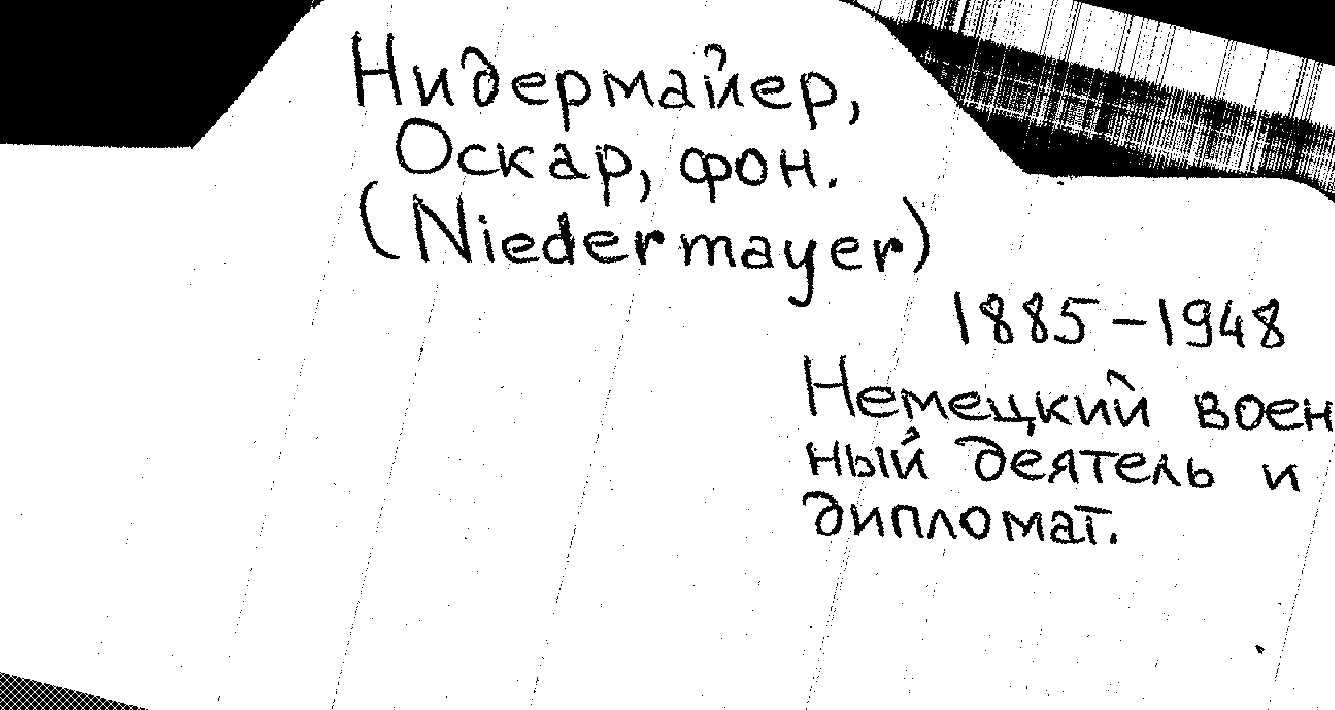 Нидермайер,
Оскар, фон.
(Niedermayer)
1885-1948
Немецкий воен
ный деятель и
дипломат.